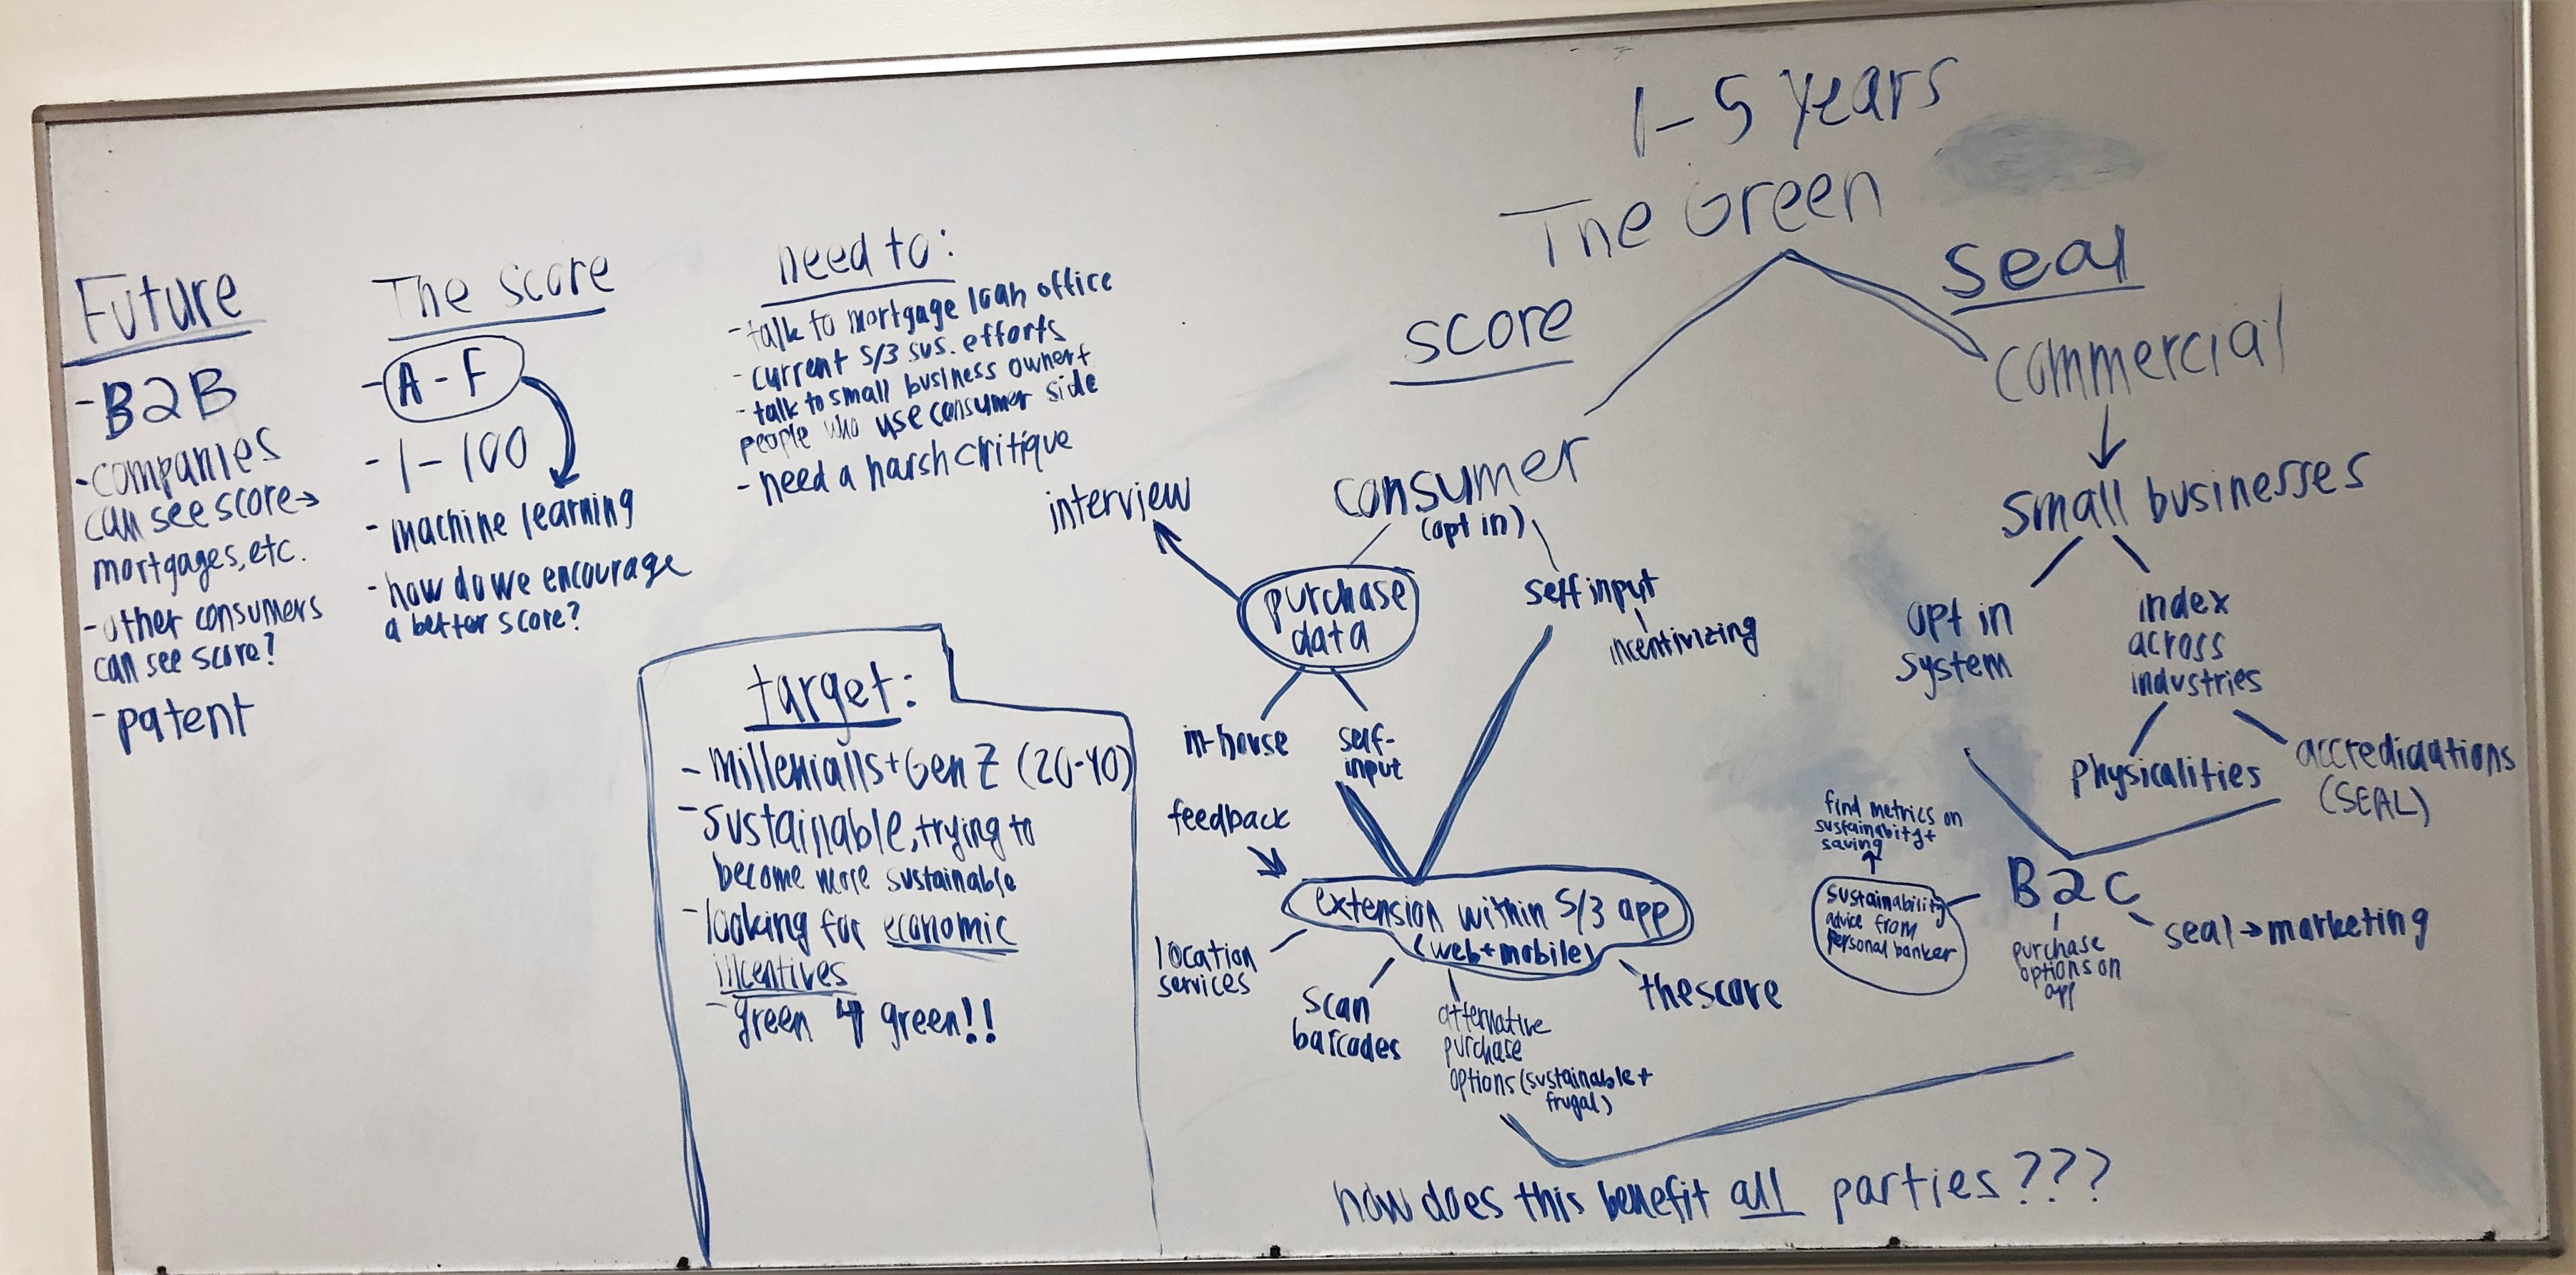 Future
- B2B
- companies
can see score →
mortgages, etc.
- other consumers
can see score?
- patent
The score
- A - F
- 1 - 100
- machine learning
- how do we encourage
a better score?
need to:
- talk to mortgage loan office
- current 5/3 sus. efforts
- talk to small business owner +
people who use consumer side
- need a harsh critique
target:
- Millenialls + Gen Z (20-40)
- sustainable, trying to
become more sustainable
- looking for economic
incentives
- green 4 green!!
1 - 5 years
The Green
score
consumer
(opt in)
interview
purchase
data
self input
incentivizing
in-house
self-
input
feedback
extension within 5/3 app
(web + mobile)
location
services
scan
barcodes
alternative
purchase
options (sustainable +
frugal)
the score
seal
commercial
small businesses
opt in
system
index
across
industries
physicalities
accrediations
(SEAL)
B2C
find metrics on
sustainabity +
saving
sustainability
advice from
personal banker
purchase
options on
app
seal → marketing
how does this benefit all parties???